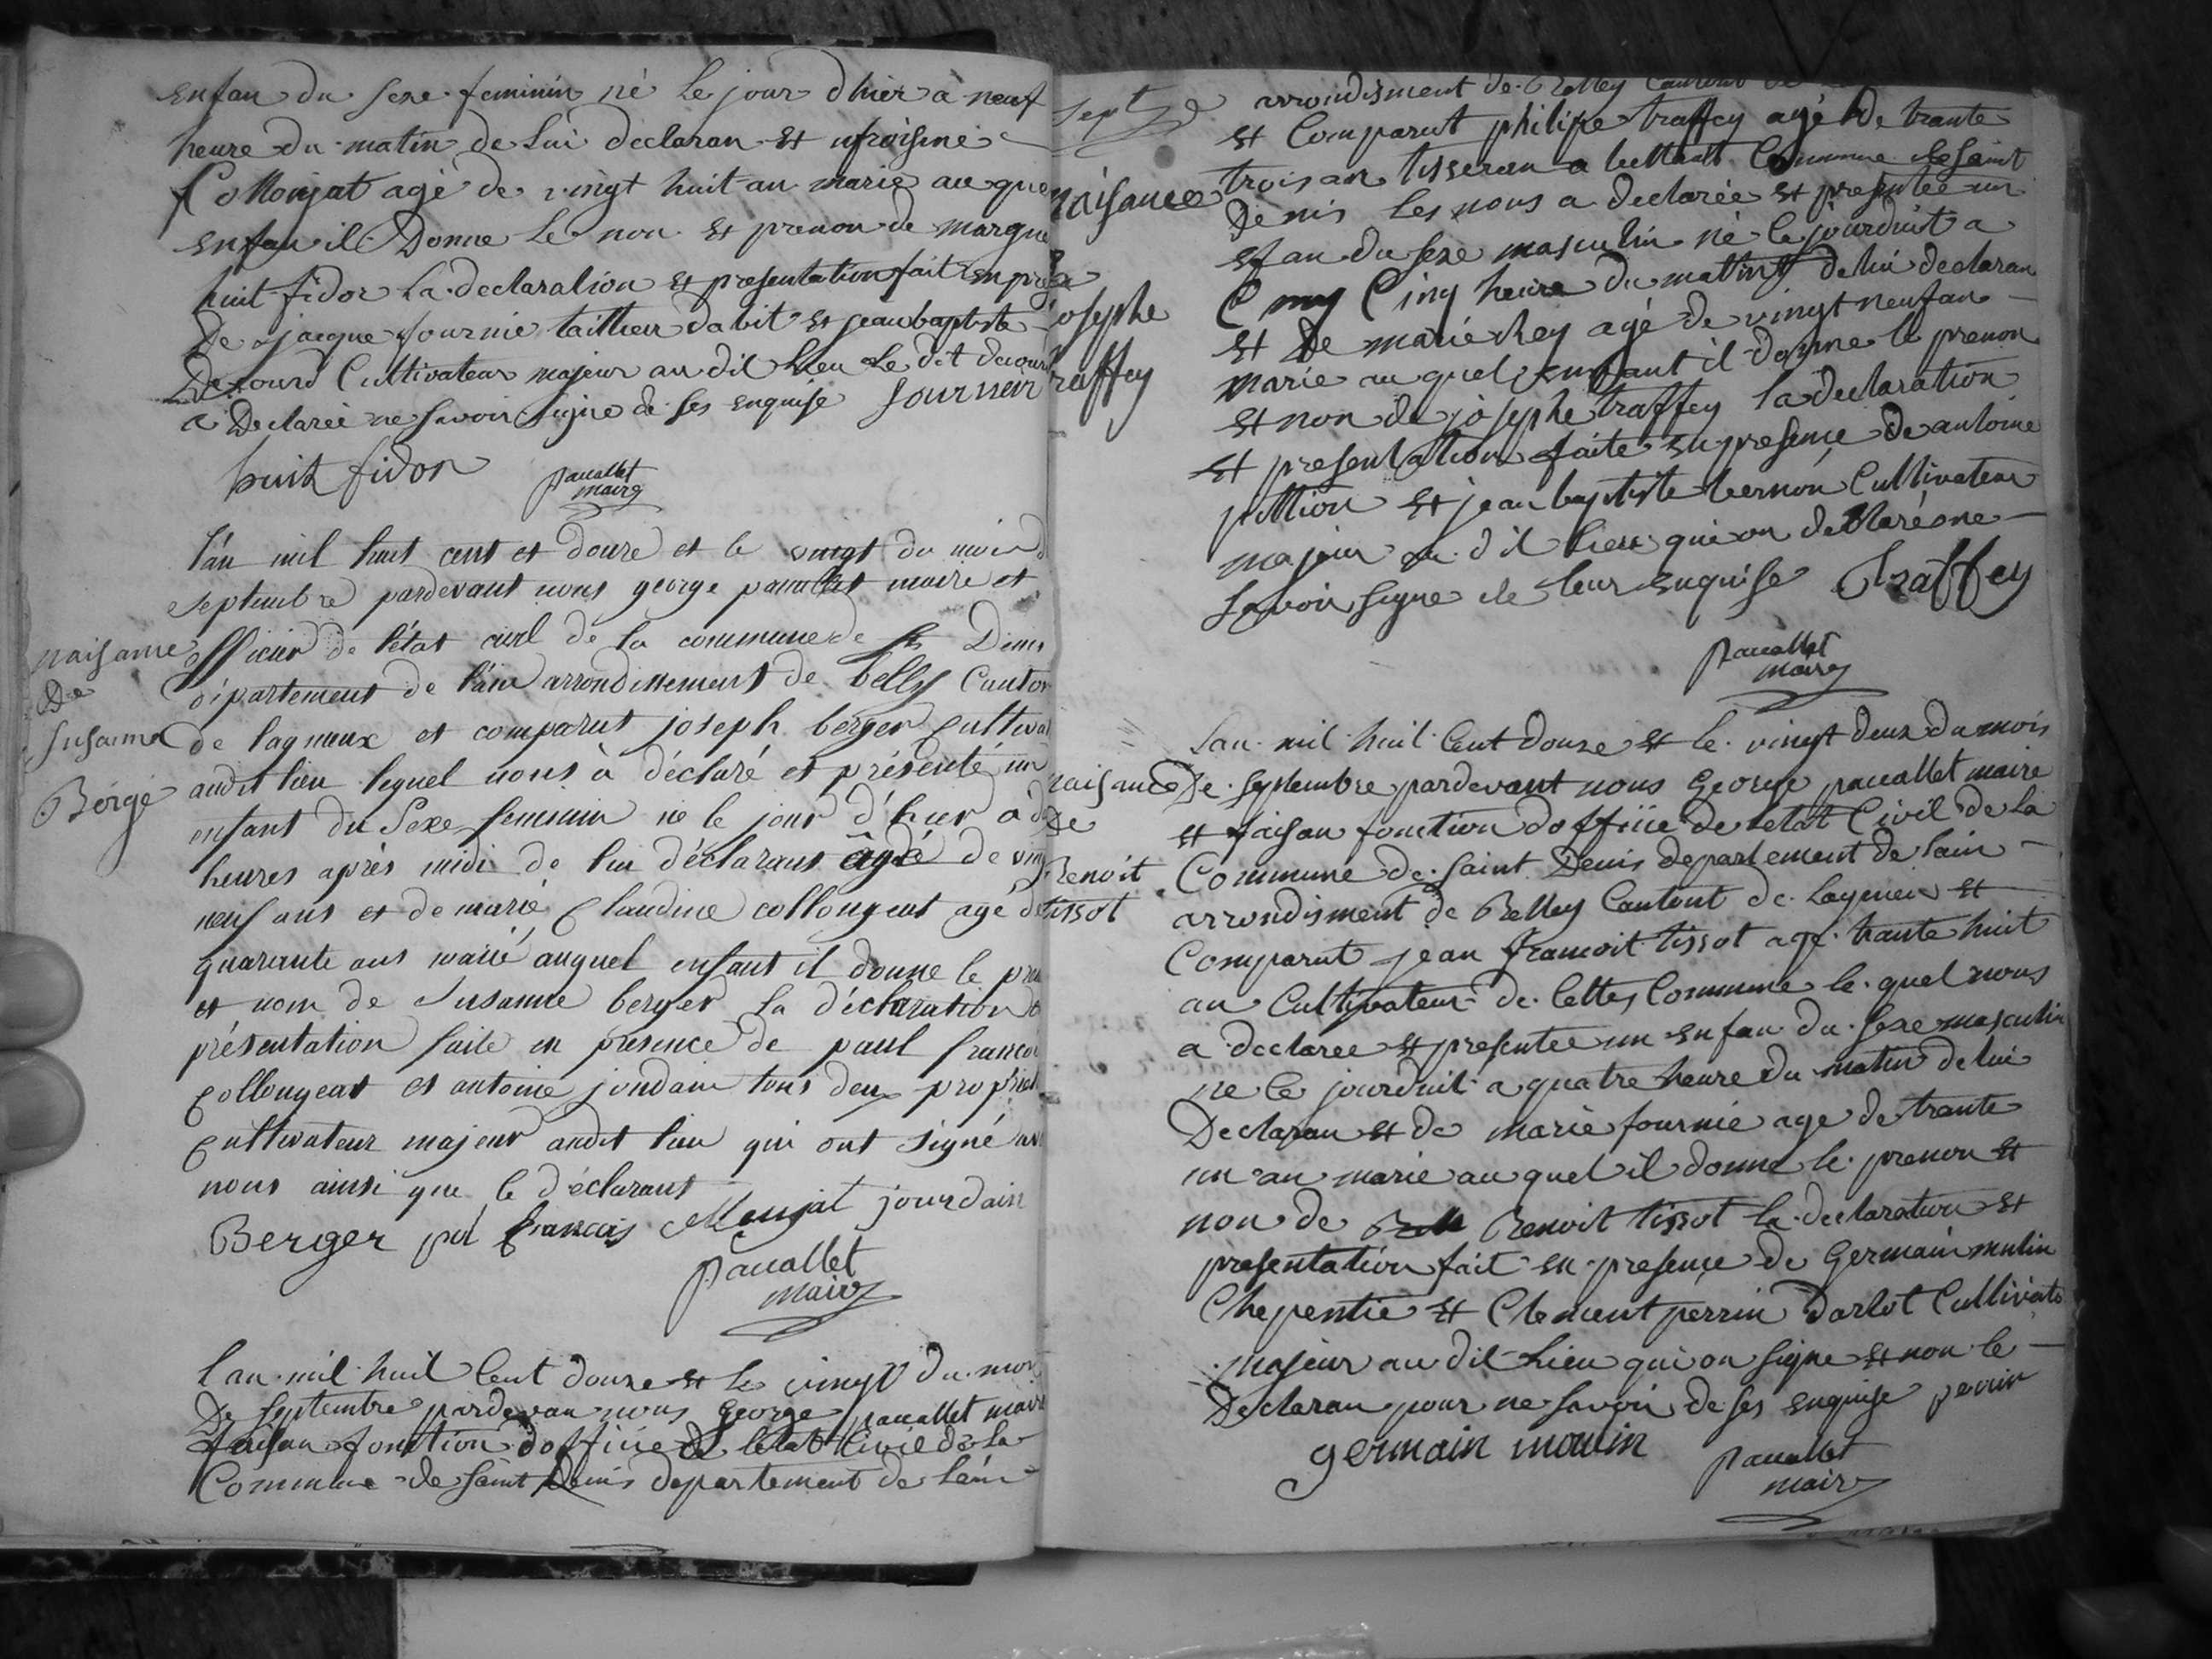 enfan du sexe feminin né le jour d hier a neuf
heure du matin de lui declaran et ufroisine
Collonjat agé de vingt huit an marie au que
enfan il Donne le non et prenon de margue
huit fidor la declaration et presentation fait en pre
De jacque fournie tailleur dabit et jean baptiste
Decourd Cultivateur majeur au dit lieu le dit decour
a Declareé ne savoir signe de ses enquise fournier
huit fidor
paucallet
maire
l'an mil huit cent et douze et le vingt du mois d
septembre pardevant nous george paucallet maire et
officier de l'état civil de la commune de st Denis
département de l'ain arrondissement de belly Canton
de lagnieux et comparut joseph berger cultiva
audit lieu lequel nous à déclaré et présenté un
enfant du Sexe feminin né le jour d'hier à d
heures après midi de lui déclarant âgé de vin
neuf ans et de marie Claudine collongeat agé de
quarante ans marié auquel enfant il donne le pre
et nom de Susanne berger la déclaration et
présentation faite en presence de paul francoi
Collongeat et antoine jourdain tous deux propriet
Cultivateur majeur audit lieu qui ont signé av
nous ainsi que le déclarant
naisance
De
Susanne
Bergé
Berger pol francois Collonjat jourdain
paucallet
maire
l an mil huit Cent douze et le vingt du moi
De septembre pardevan nous George paucallet maire
faisan fonction d officie de letat Civil de la
Commune de saint Denis departement de lain
sept
arrondisment de Belley
et Comparut philipe traffey agé De trante
trois an tisseran a bettant Commune de saint
Denis les nous a declareé et presentée un
efan du sexe masculin né le jourduit a
Cinq heure du matin de lui declaran
et De marie rhey agé de vingt neuf an
marie au quel enfant il donne le prenon
et non de josephe traffey la declaration
et presentation faite en presence de antoine
pittion et jean baptiste bernon Cultivateur
majeur au dit lieu qui on declaré ne
savoir signe de leur enquise Traffey
naisance
De
josephe
traffey
paucallet
maire
Lan mil huit Cent douze et le vingt deux du mois
De septembre pardevant nous George paucallet maire
et faisan fonction d officie de letat Civil de la
Commune de saint Denis departement de lain
arrondisment de Belley Cantont de Lagnieu et
Comparut jean francoit tissot age trante huit
an Cultivateur de Cettes Commune le quel nous
a declaree et presentee un enfan du sexe masculin
ne le jourduit a quatre heure du matin de lui
Declaran et de marie fournie age de trante
un an marie au quel il donne le prenon et
non de Benoit tissot la declaration et
presentation fait en presence de Germain mulin
Chepentie et Clement perrin Darlot Cultivate
majeur au dit lieu qui on signe et non le
Declaran pour ne savoir de ses enquise perrin
naisance
De
Benoit
tissot
germain moulin
paucallet
maire